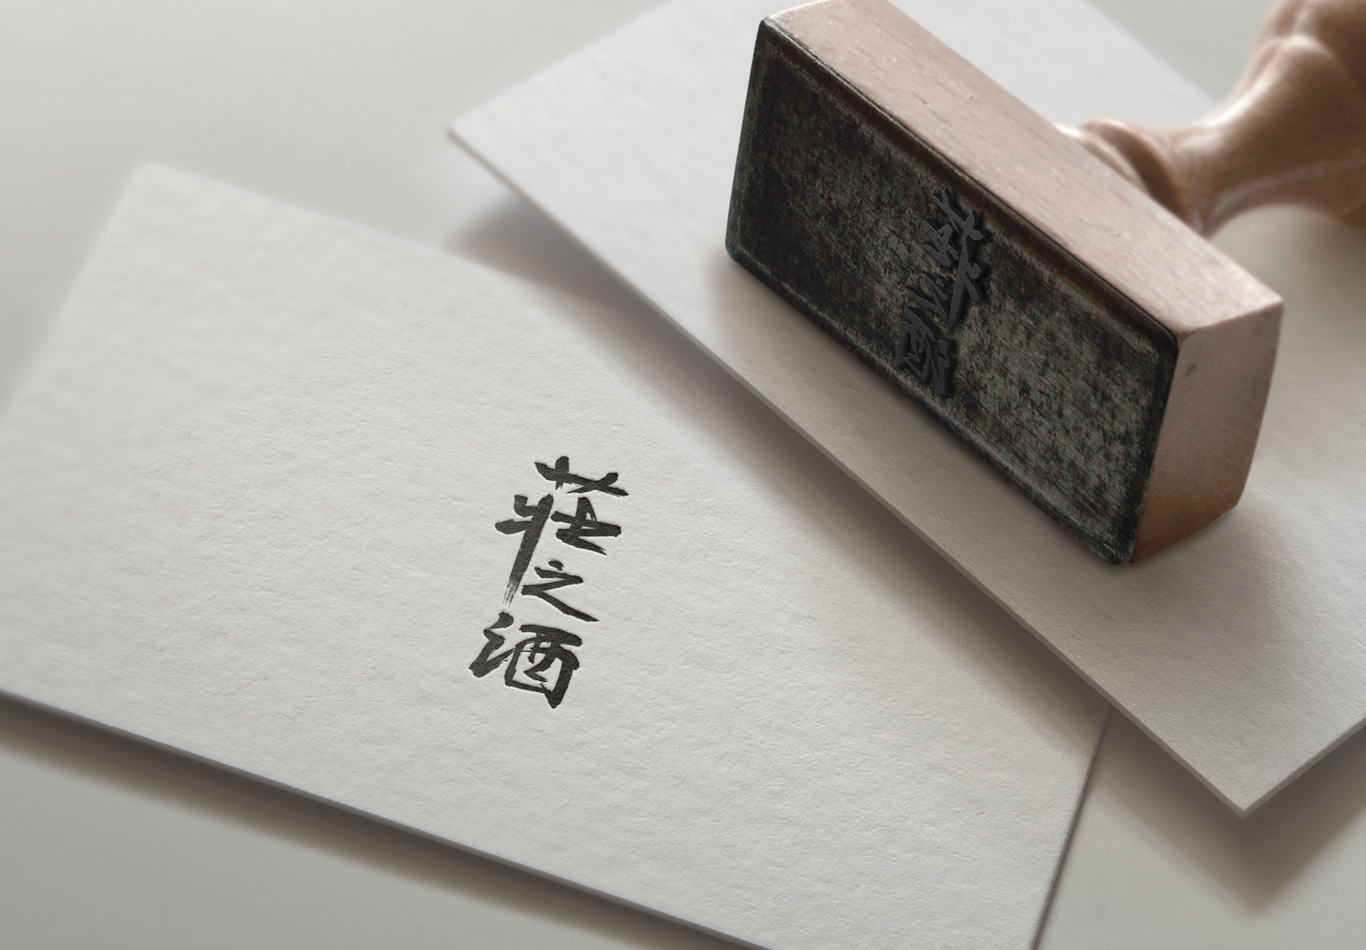 莊之酒
莊之酒